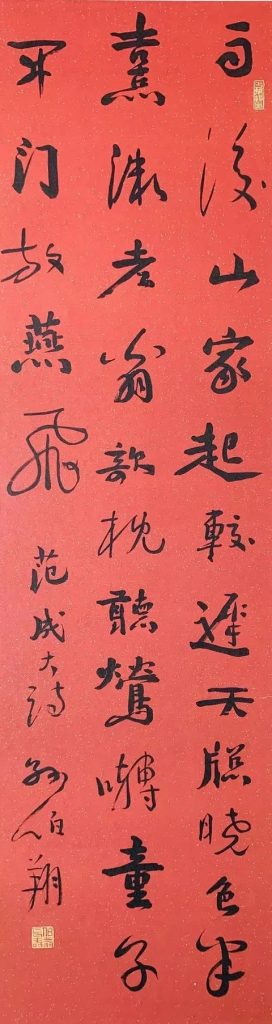 雨後山家起較遲天牕晓色半
熹微老翁欹枕聽鶯囀童子
开门放燕飛 范成大诗 孙伯翔